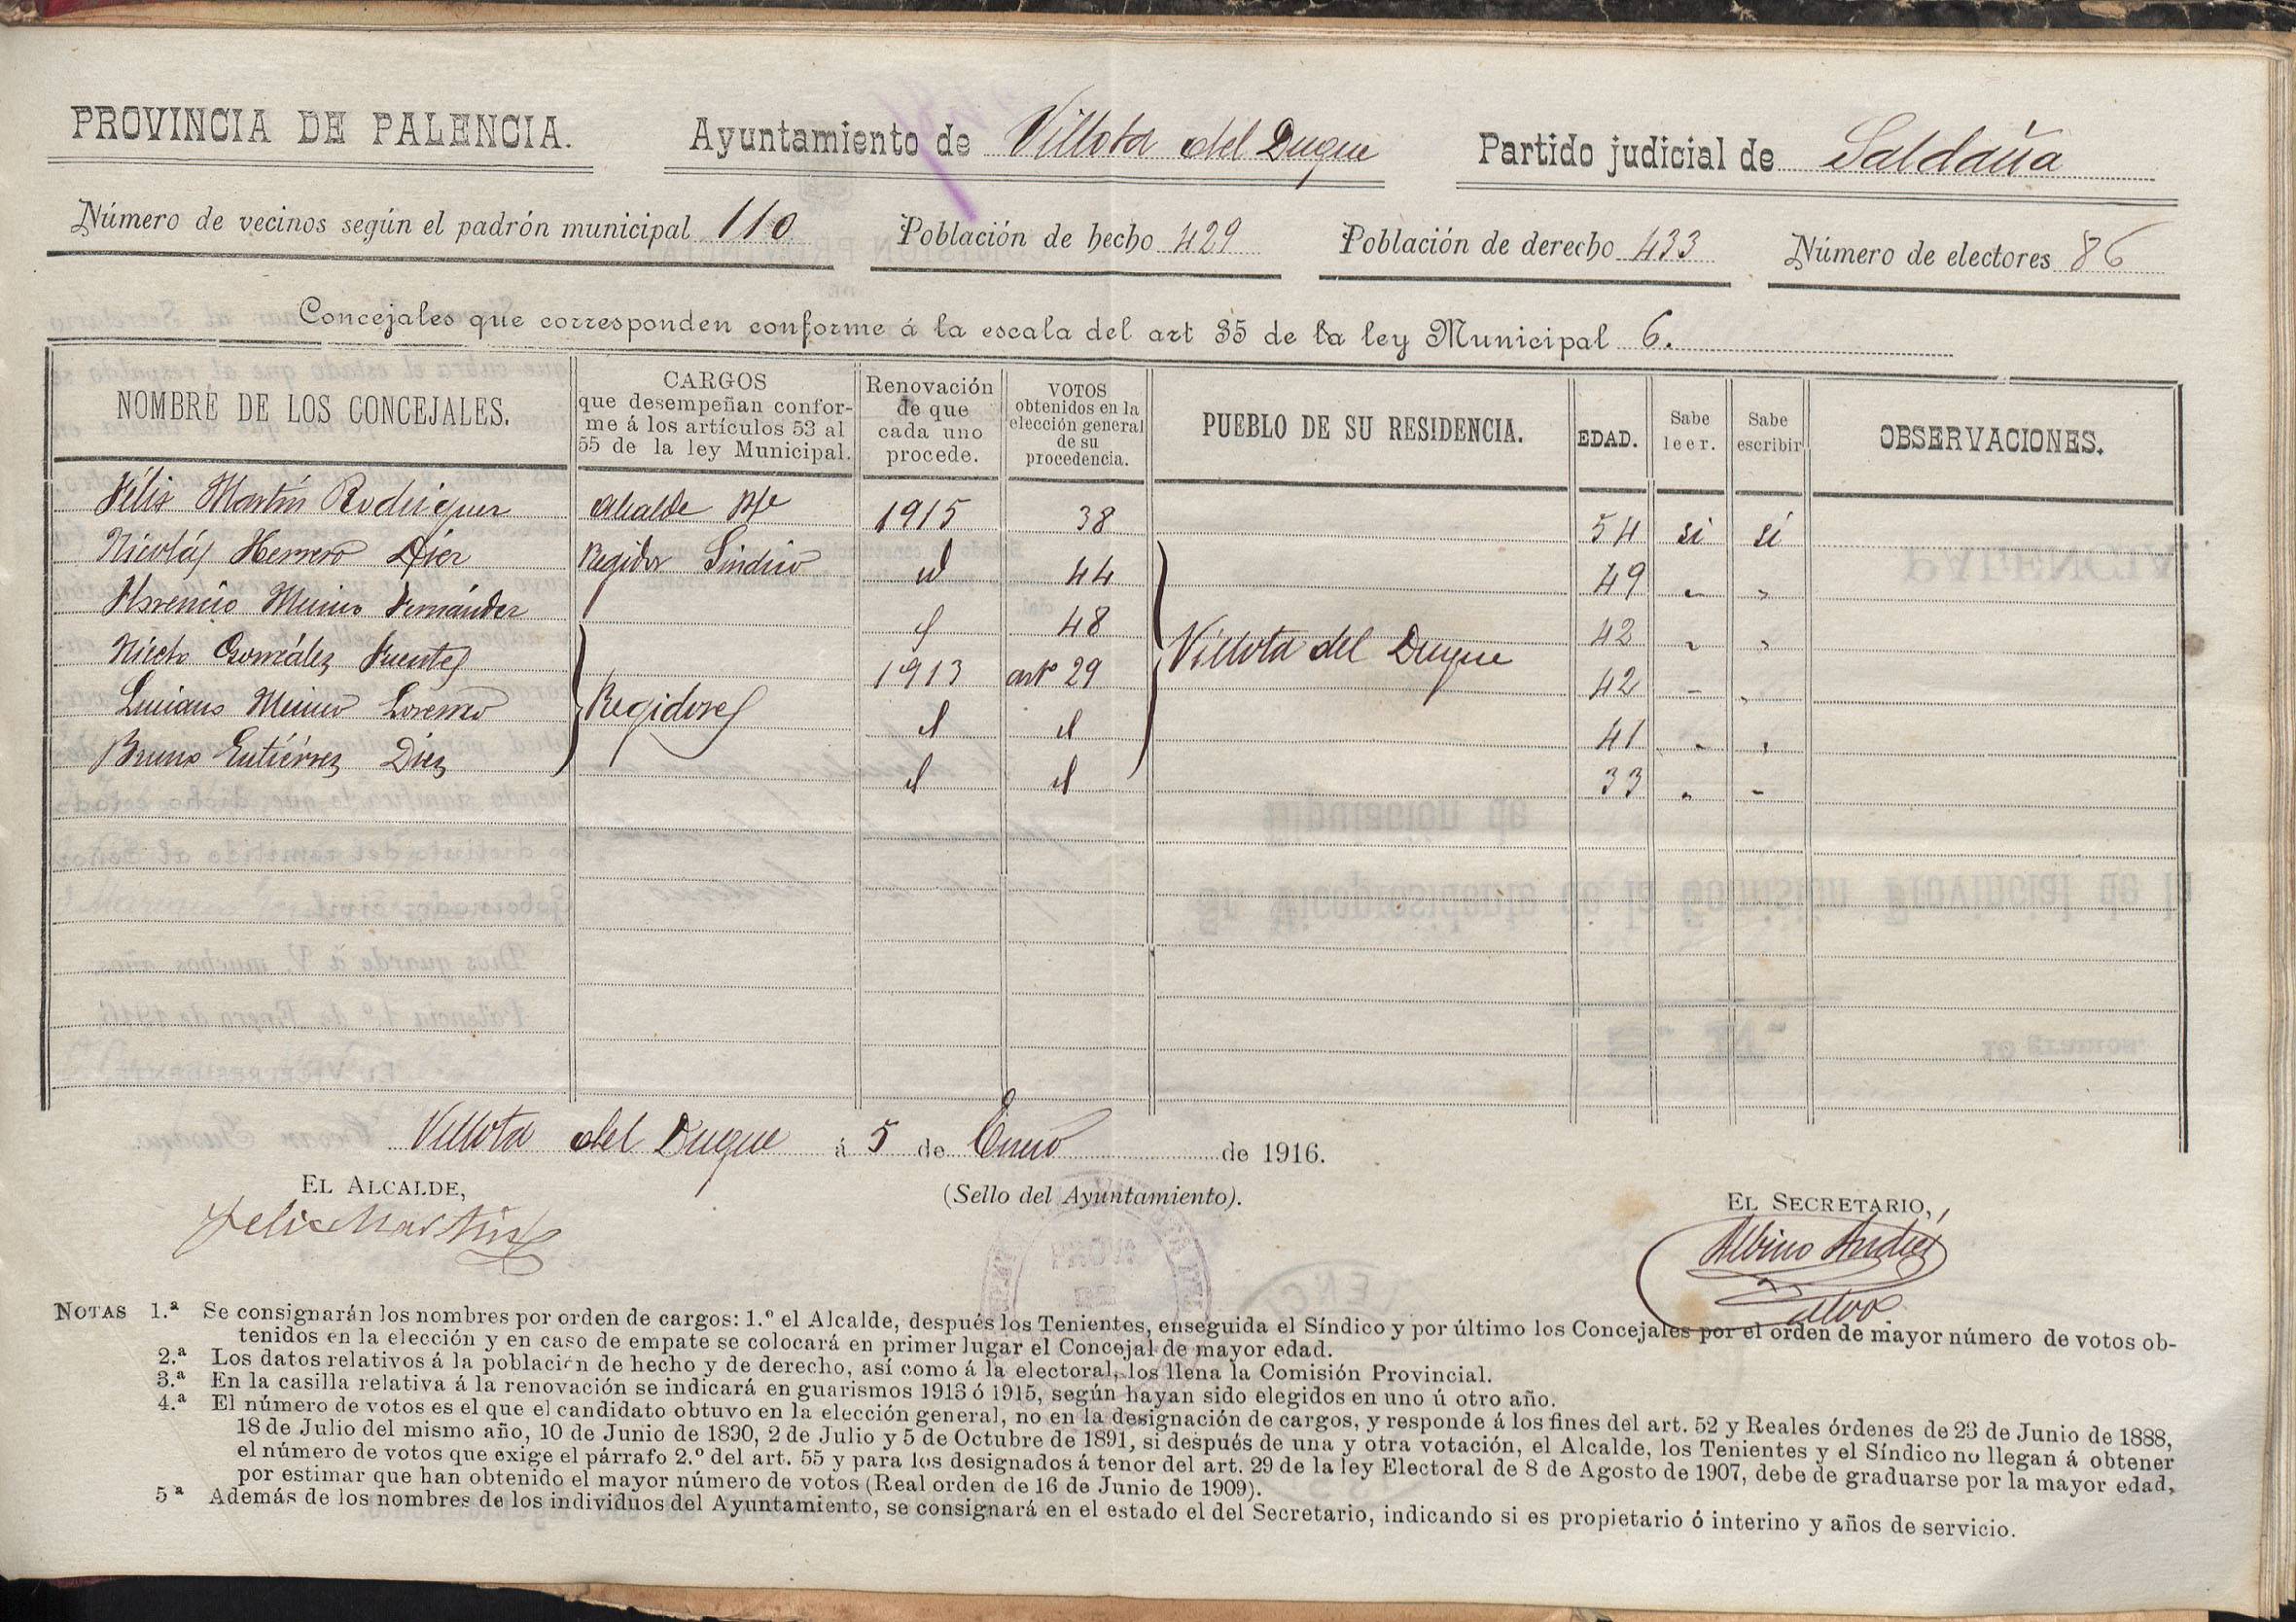 PROVINCIA DE PALENCIA. Ayuntamiento de Villota del Duque Partido judicial de Saldaña
Número de vecinos según el padrón municipal 110 Población de hecho 429 Población de derecho 433 Número de electores 86
Concejales que corresponden conforme á la escala del art 35 de la ley Municipal 6.
NOMBRE DE LOS CONCEJALES. CARGOS que desempeñan conforme á los artículos 53 al 55 de la ley Municipal. Renovación de que cada uno procede. VOTOS obtenidos en la elección general de su procedencia. PUEBLO DE SU RESIDENCIA. EDAD. Sabe leer. Sabe escribir OBSERVACIONES.
Félix Martín Rodríguez Alcalde Pte 1915 38 54 si si
Nicolás Herrero Díez Regidor Síndico id 44 49 " "
Florencio Merino Fernández 48 42 " "
Niceto González Fuentes 1913 artº 29 Villota del Duque 42 " "
Luciano Merino Lorenzo Regidores id id 41 " "
Bruno Gutiérrez Díez id id 33 " "
Villota del Duque á 5 de Enero de 1916.
EL ALCALDE, (Sello del Ayuntamiento). EL SECRETARIO,
Felix Martin Albino Andrés
Calvo
NOTAS 1.ª Se consignarán los nombres por orden de cargos: 1.º el Alcalde, después los Tenientes, enseguida el Síndico y por último los Concejales por el orden de mayor número de votos ob-
tenidos en la elección y en caso de empate se colocará en primer lugar el Concejal de mayor edad.
2.ª Los datos relativos á la población de hecho y de derecho, así como á la electoral, los llena la Comisión Provincial.
3.ª En la casilla relativa á la renovación se indicará en guarismos 1913 ó 1915, según hayan sido elegidos en uno ú otro año.
4.ª El número de votos es el que el candidato obtuvo en la elección general, no en la designación de cargos, y responde á los fines del art. 52 y Reales órdenes de 23 de Junio de 1888,
18 de Julio del mismo año, 10 de Junio de 1890, 2 de Julio y 5 de Octubre de 1891, si después de una y otra votación, el Alcalde, los Tenientes y el Síndico no llegan á obtener
el número de votos que exige el párrafo 2.º del art. 55 y para los designados á tenor del art. 29 de la ley Electoral de 8 de Agosto de 1907, debe de graduarse por la mayor edad,
por estimar que han obtenido el mayor número de votos (Real orden de 16 de Junio de 1909).
5ª Además de los nombres de los individuos del Ayuntamiento, se consignará en el estado el del Secretario, indicando si es propietario ó interino y años de servicio.